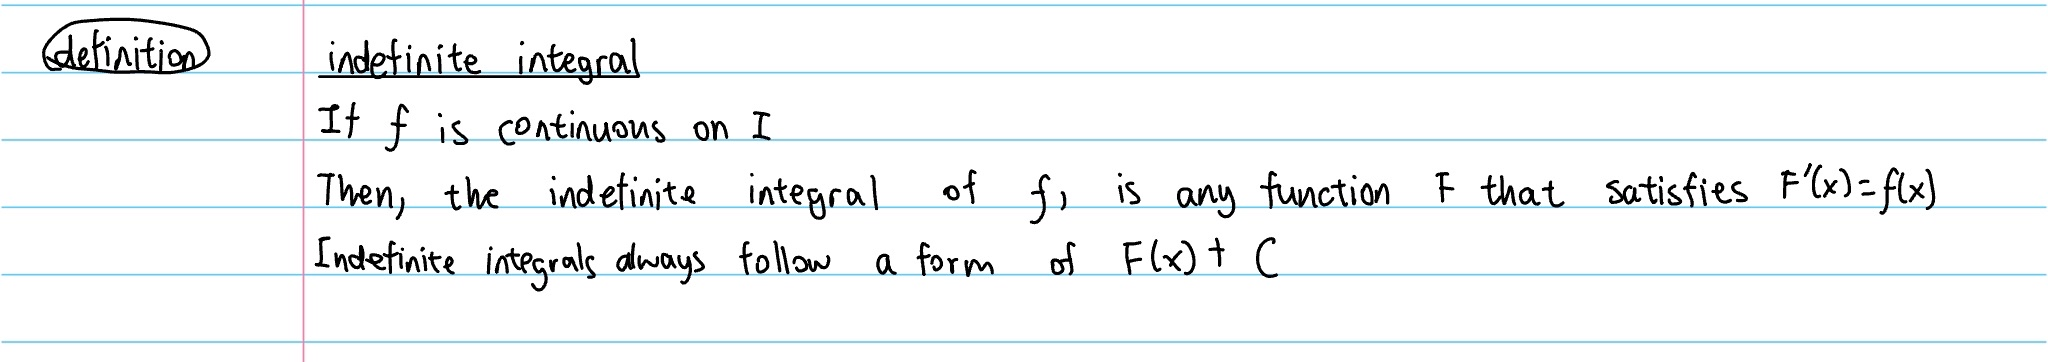 definition
indefinite integral
If f is continuous on I
Then, the indefinite integral of f, is any function F that satisfies F'(x)=f(x)
Indefinite integrals always follow a form of F(x)+ C